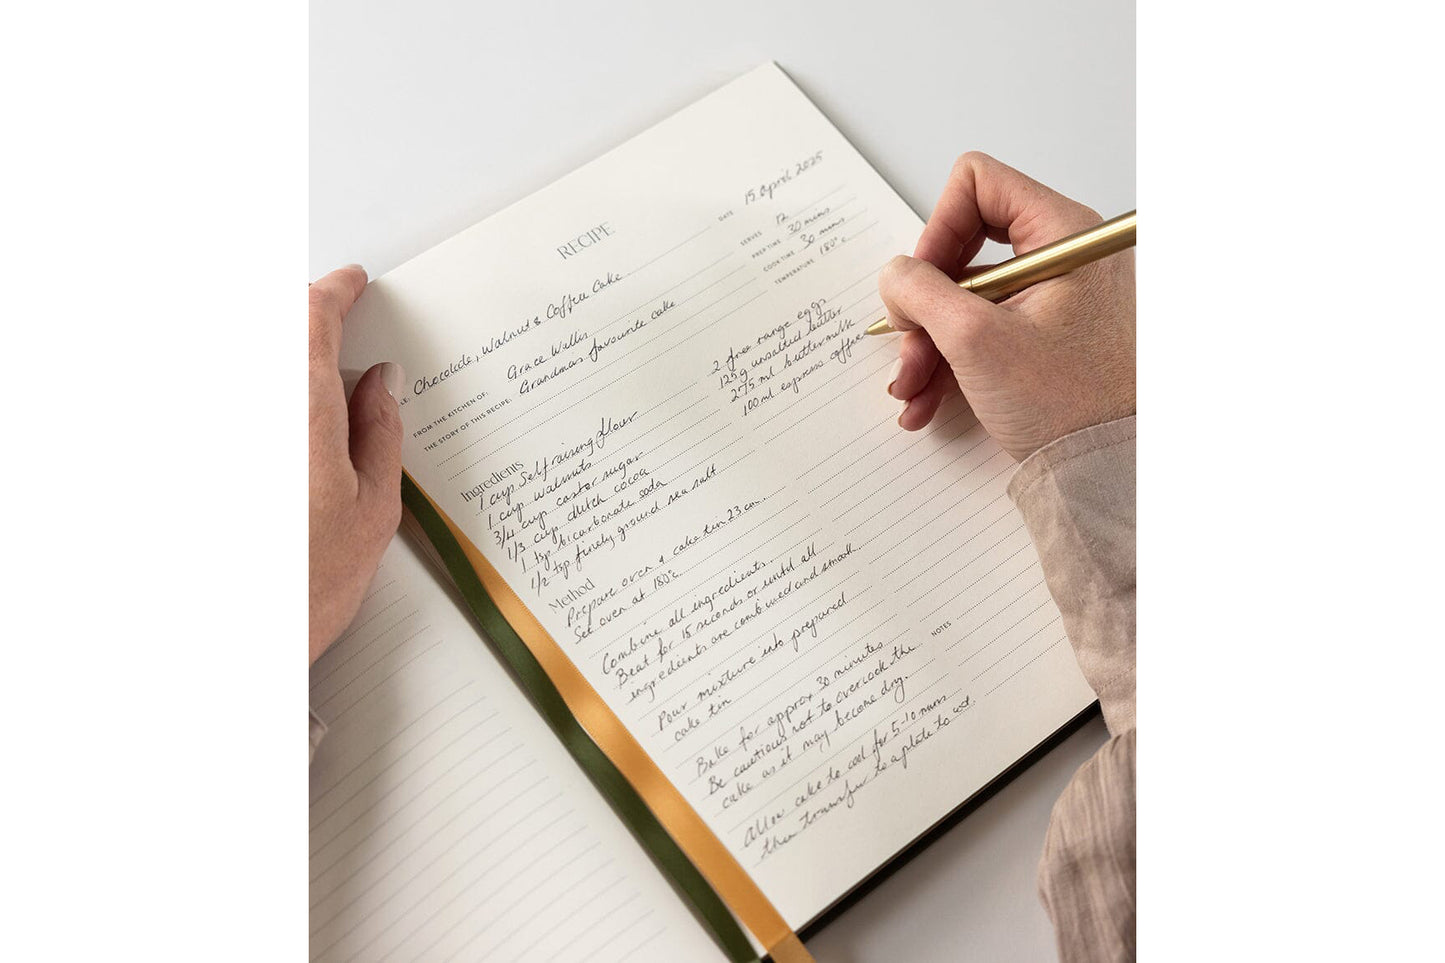 RECIPE
DATE 15 april 2025
SERVES 12
PREP TIME 30 mins
COOK TIME 30 mins
TEMPERATURE 180°c
LE: Chocolate, Walnut & Coffee Cake
FROM THE KITCHEN OF: Grace Willis
THE STORY OF THIS RECIPE: Grandmas favourite cake
Ingredients
1 cup Self raising flour
1 cup walnuts
3/4 cup castor sugar
1/3 cup dutch cocoa
1 tsp bicarbonate soda
1/2 tsp finely ground sea salt
2 free range eggs
125g unsalted butter
275 ml buttermilk
100ml espresso coffee
Method
Prepare oven & cake tin 23 cm.
Set oven at 180°c
Combine all ingredients.
Beat for 15 seconds or until all
ingredients are combined and smooth.
Pour mixture into prepared
cake tin
Bake for approx 30 minutes
Be cautious not to overcook the
cake as it may become dry.
Allow cake to cool for 5-10 mins
then transfer to a plate to
NOTES